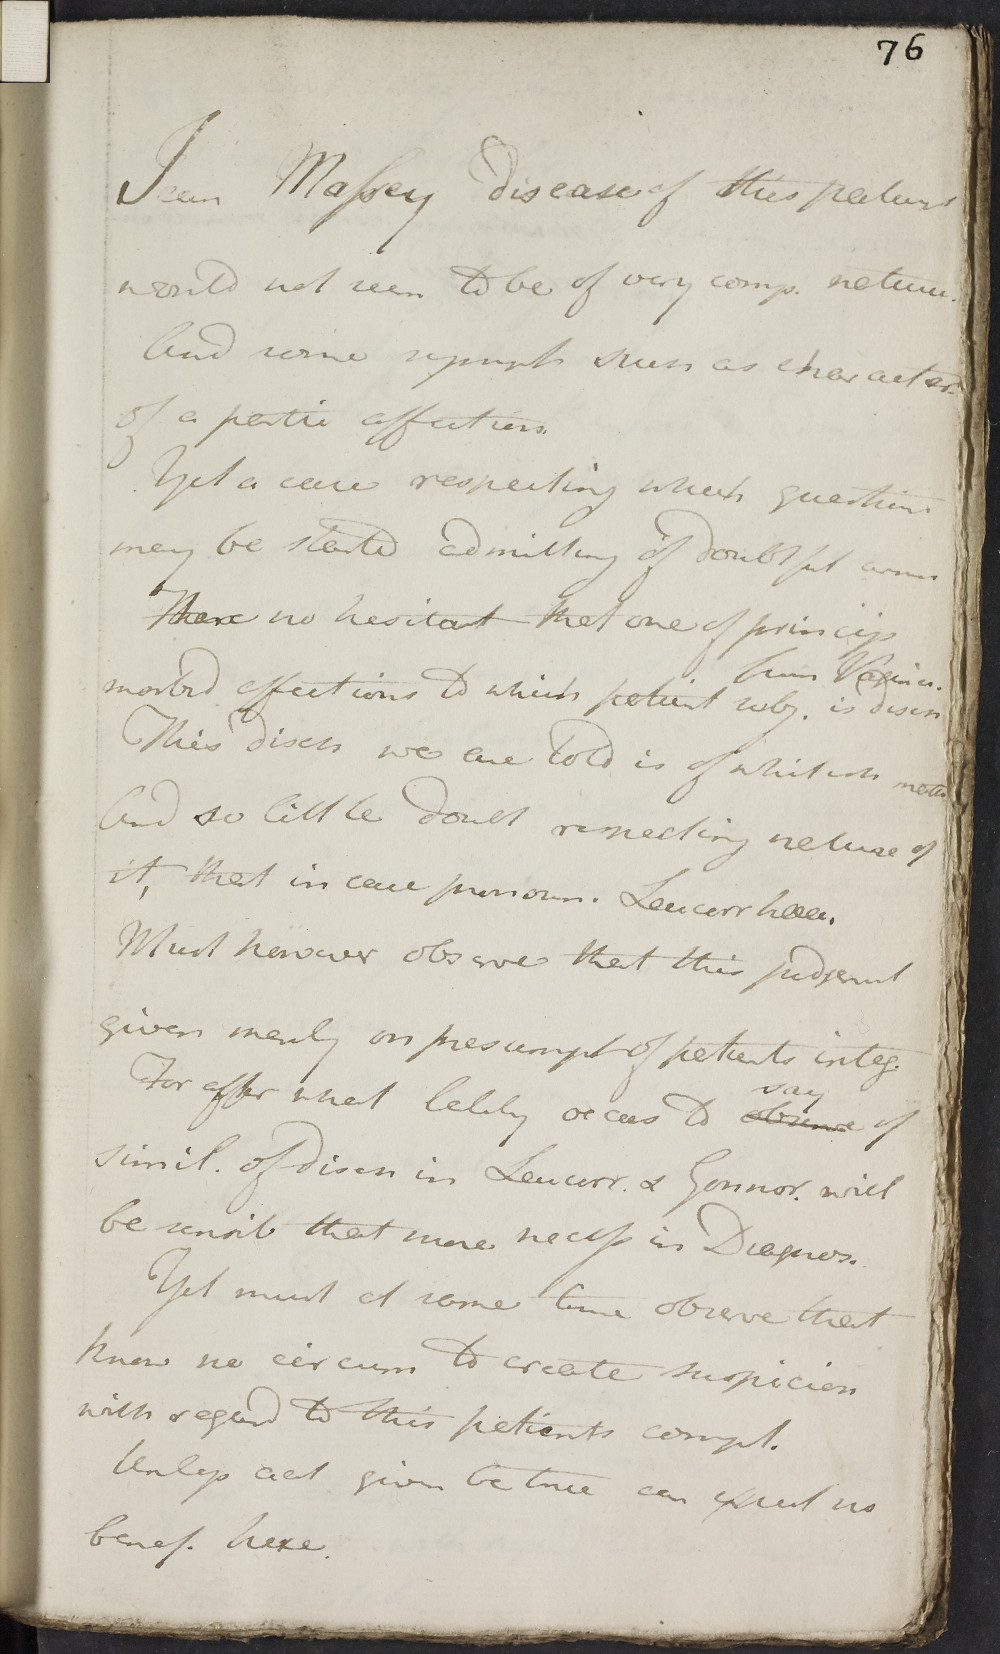 76
Jean Massey Disease of this patient
would not seem to be of very comp. nature.
And some sympt seem as character
of a partic affection.
Yet a case respecting which question
may be started admitting of doubtful answ
There no hesitat that one of princip
from Vagina.
morbid affections to which patient subj. is disch
This disch we are told is of whitish matter
And so little doubt respecting nature of
it, that in case pronoun. Leucorrhaea.
Must however observe that this judgment
given merely on presumpt of patients integ.
For after what lately occas to
say
observe of
simil. of disch in Leucorr. & Gonnor. will
be sensib that more necess in Diagnos.
Yet must at same time observe that
know no circum to create suspicion
with regard to this patients compl.
Unless act given be true can expect no
benef. here.